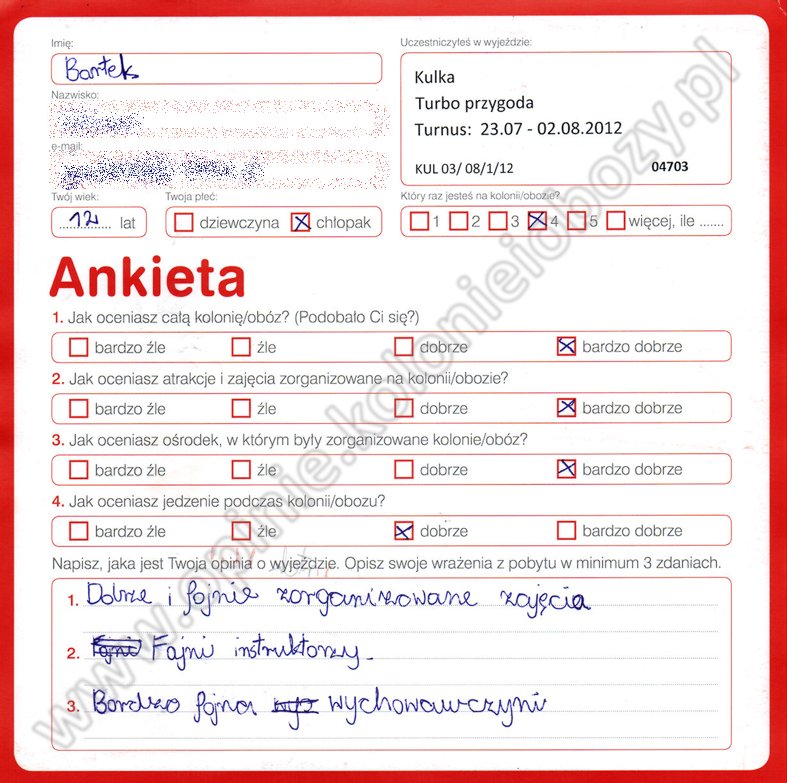 Imię:
Bartek
Uczestniczyłeś w wyjeździe:
Kulka
Turbo przygoda
Turnus: 23.07 - 02.08.2012
KUL 03/ 08/1/12 04703
Nazwisko:
e-mail:
Twój wiek:
12 lat
Twoja płeć:
dziewczyna chłopak
Który raz jesteś na kolonii/obozie?
1 2 3 4 5 więcej, ile .......
Ankieta
1. Jak oceniasz całą kolonię/obóz? (Podobało Ci się?)
bardzo źle źle dobrze bardzo dobrze
2. Jak oceniasz atrakcje i zajęcia zorganizowane na kolonii/obozie?
bardzo źle źle dobrze bardzo dobrze
3. Jak oceniasz ośrodek, w którym były zorganizowane kolonie/obóz?
bardzo źle źle dobrze bardzo dobrze
4. Jak oceniasz jedzenie podczas kolonii/obozu?
bardzo źle źle dobrze bardzo dobrze
Napisz, jaka jest Twoja opinia o wyjeździe. Opisz swoje wrażenia z pobytu w minimum 3 zdaniach.
1. Dobrze i fajnie zorganizowane zajęcia
2. Fajni Fajni instruktorzy.
3. Bardzo fajna wyc wychowawczyni
www.opinie.kolonieiobozy.pl